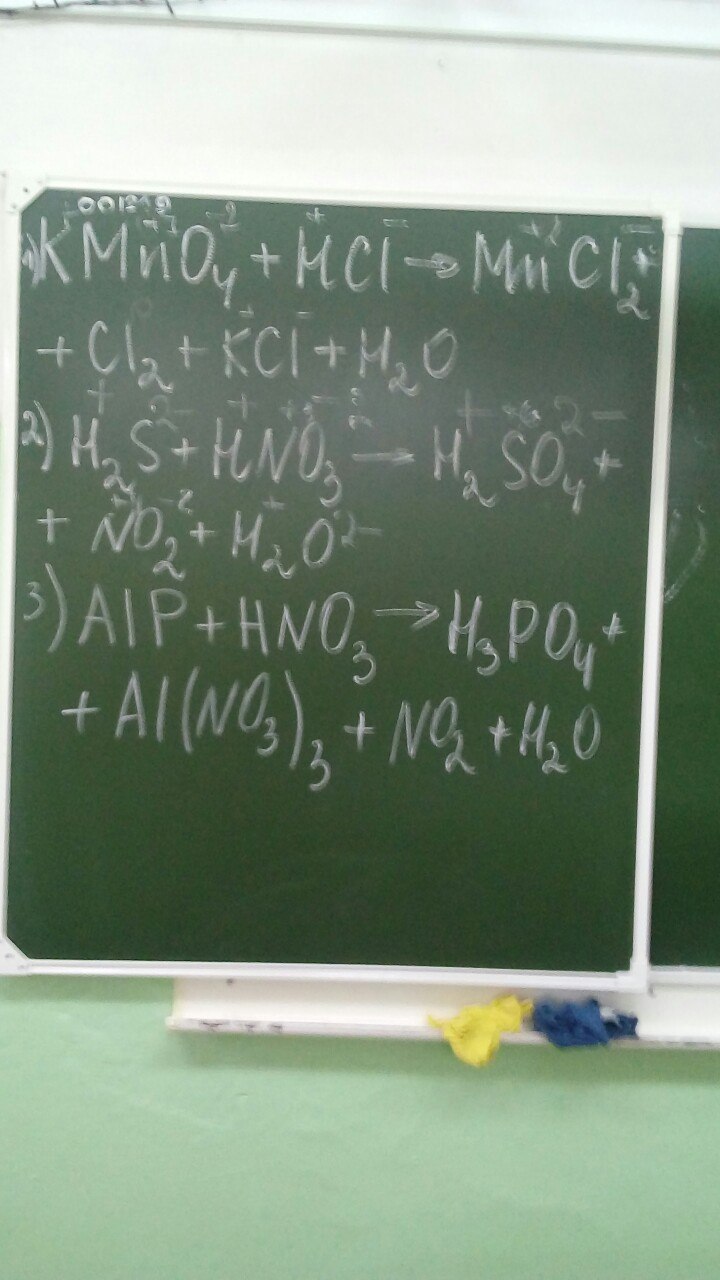 1) KMnO₄ + HCl → MnCl₂ +
+ Cl₂ + KCl + H₂O
2) H₂S + HNO₃ → H₂SO₄ +
+ NO₂ + H₂O
3) AlP + HNO₃ → H₃PO₄ +
+ Al(NO₃)₃ + NO₂ + H₂O